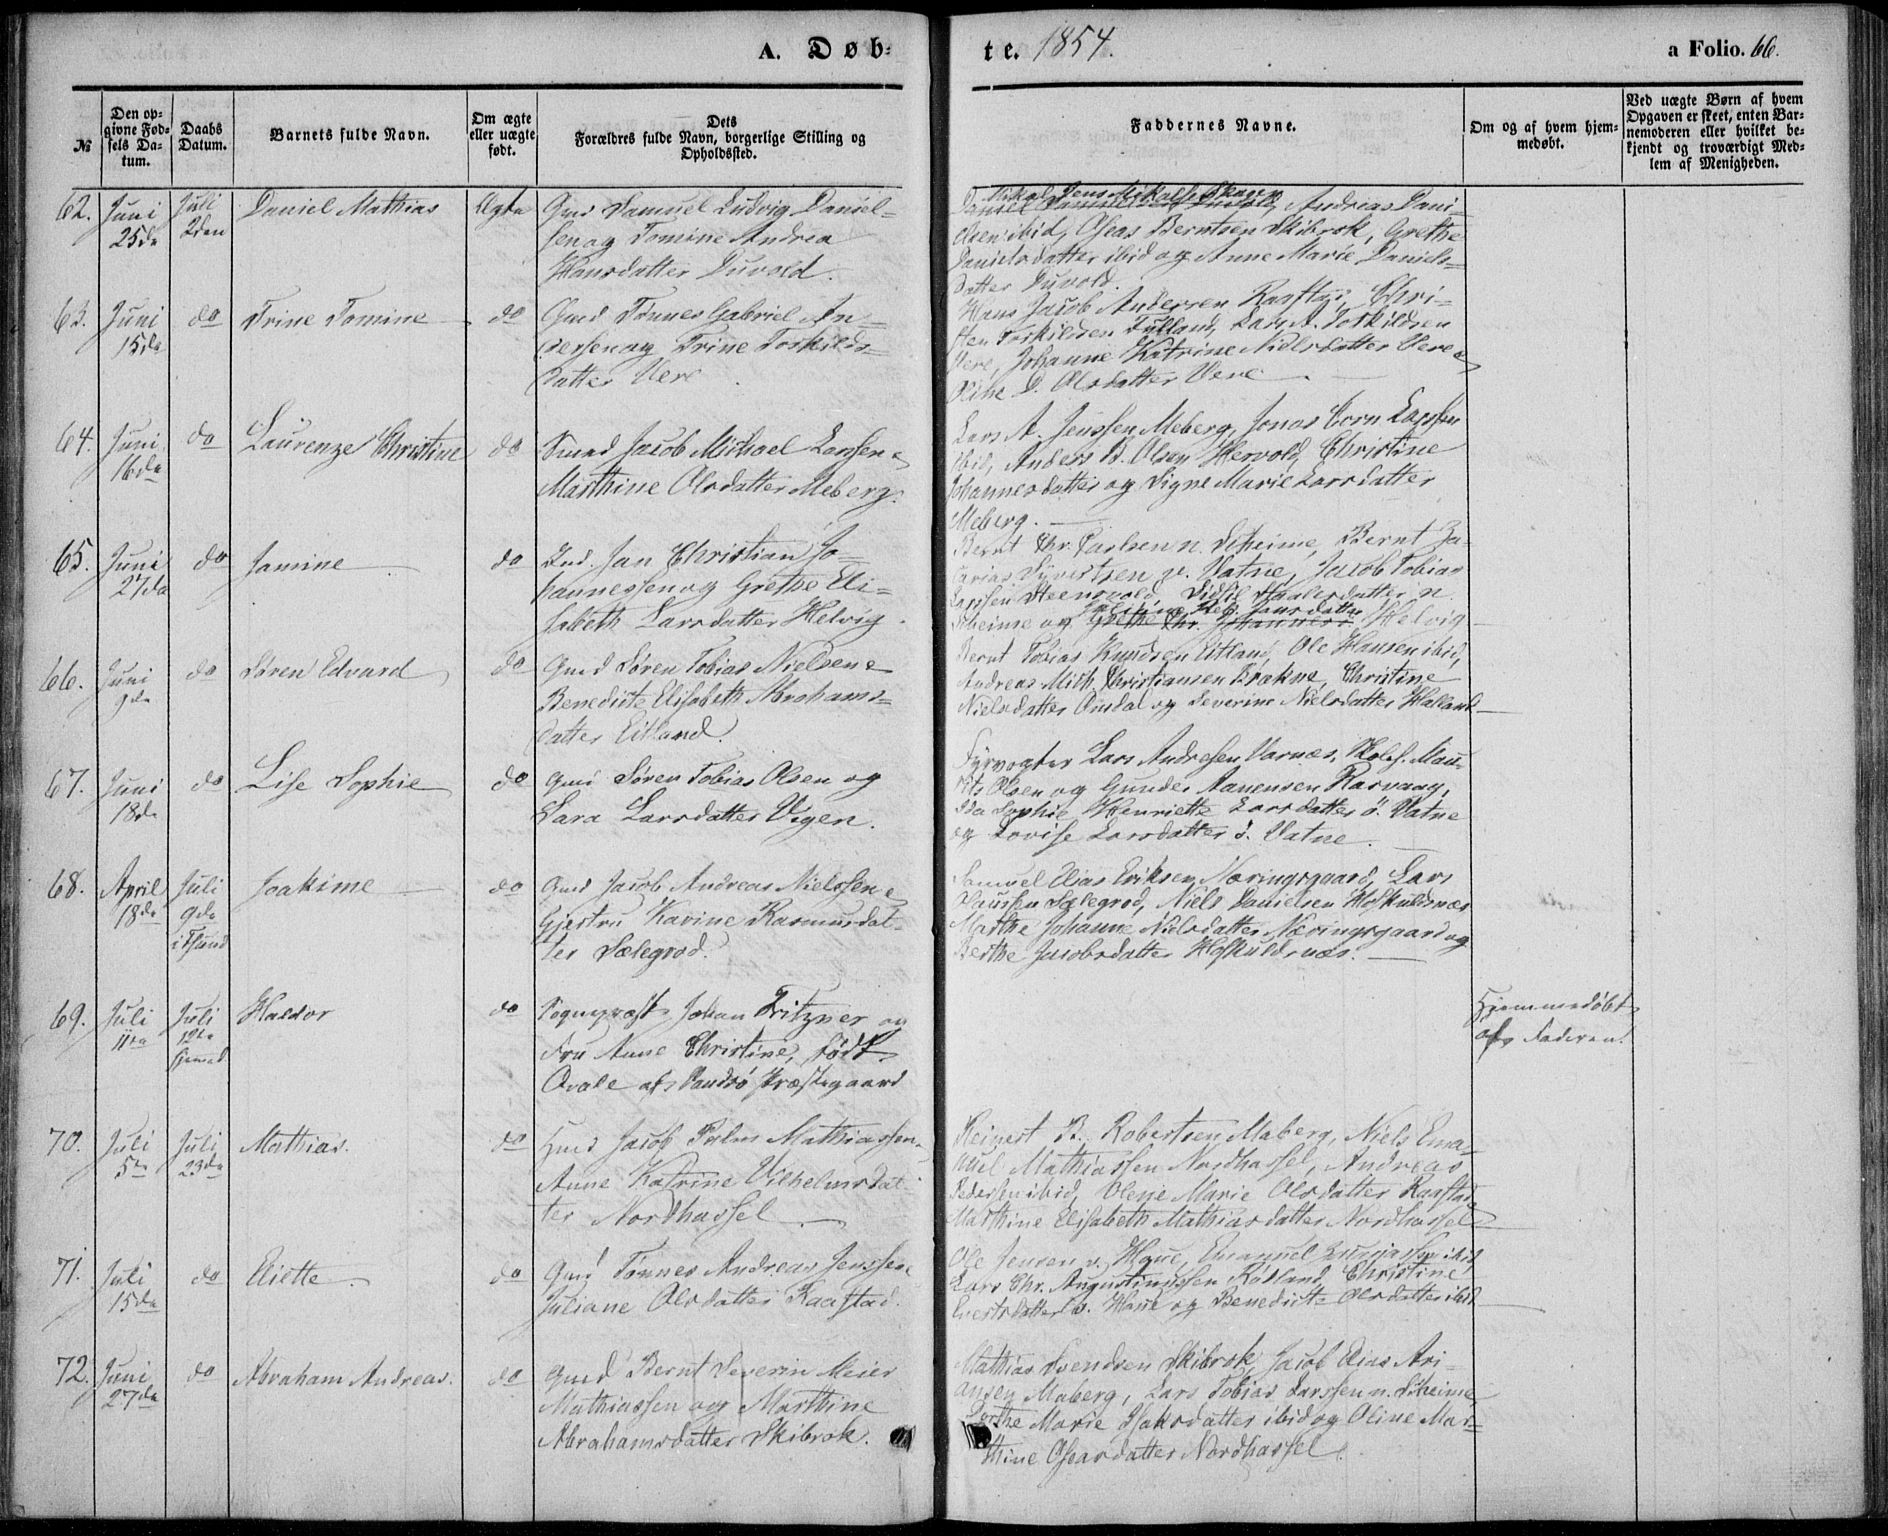 A. Døb-
te. 1854.
a Folio. 66.
№
Den op-
givne Fød-
sels Da-
tum.
Daabs
Datum.
Barnets fulde Navn.
Om ægte
eller uægte
født.
Dets
Forældres fulde Navn, borgerlige Stilling og
Opholdssted.
Faddernes Navne.
Om og af hvem hjem-
medøbt.
Ved uægte Børn af hvem
Opgaven er skeet, enten Bar-
nemoderen eller hvilket be-
kjendt og troværdigt Med-
lem af Menigheden.
62. Juni 25de Juli 2den Daniel Mathias Ægte
Gmd Samuel Ludvig Daniel-
sen og Tomine Andrea
Hansdatter Duvold.
Andreas Dani-
elsen ibid, Oseas Berntsen Skibrok, Grethe
Danielsdatter ibid og Anne Marie Daniels-
datter Duvold.
63. Juni 15de do Trine Tomine do
Gmd Tønnes Gabriel An-
dersen og Trine Toskilds-
datter Vere
Hans Jacob Andersen Raastad, Chri-
sten Toskildsen Fulland, Lars A. Toskildsen
Vere, Johanne Katrine Nielsdatter Vere &
Oline D. Olsdatter Vere
64. Juni 16de do Laurenze Christine do
Jacob Michael Larssen &
Marthine Olsdatter Meberg.
Lars A. Jenssen Meberg, Jonas Corn Larssen
ibid, Anders B. Olsen Hervold, Christine
Johannesdatter og Signe Marie Larsdatter
Meberg.
65. Juni 27de do Jamine do
Ind. Jan Christian Jo-
hannessen og Grethe Eli-
sabeth Larsdatter Helvig.
Bernt Chr. Carlsen n. Skeime, Bernt Za-
carias Syvertsen v. Vatne, Jacob Tobias
Larssen Steensvold, Sidsel Staalesdatter n.
Skeime og Grethe Chr. Johannesd Helvig
66. Juni 9de do Søren Edvard do
Gmd Søren Tobias Nielsen &
Benedicte Elisabeth Abrahams-
datter Eitland.
Bernt Tobias Knudsen Eitland, Ole Hansen ibid,
Andreas Mich. Christiansen Brakne, Christine
Nielsdatter Omdal og Severine Nielsdatter Halland
67. Juni 18de do Lise Sophie do
Gmd Søren Tobias Olsen og
Sara Larsdatter Vigen.
Fyrvogter Lars Andresen Varnæs, Mau-
rits Olsen og Gunder Aanensen Rasvaag,
Ida Sophie Henriette Larsdatter ö. Vatne
og Lovise Larsdatter ö. Vatne.
68. April 18de Juli 9de i Fsund Joakime do
Gmd Jacob Andreas Nielssen &
Gjertru Karine Rasmusdat-
ter Sælegrod.
Samuel Elias Eriksen Næringsgaard, Lars
Sælegrod, Niels Danielsen Høskuldsnæs
Marthe Johanne Nielsdatter Næringsgaard og
Berthe Jacobsdatter Høskuldsnæs.
69. Juli 11te Juli 12te Haldor do
Sognepræst Johan Fritzner og
Fru Anne Christine, født
Qvale af Vandsø Præstegaard
Hjemmedøbt
af Faderen.
70. Juli 5te Juli 23de Mathias. do
Jacob Palm Mathiassen &
Anne Katrine Vilhelmsdat-
ter Nordhassel
Reinert B. Robertsen Maberg, Niels Ema-
nuel Mathiassen Nordhassel, Andreas
Pedersen ibid, Olene Marie Olsdatter Raastad
Marthine Elisabeth Mathiasdatter Nordhassel
71. Juli 15de do Eliette. do
Gmd Tønnes Andreas Jenssen &
Juliane Olsdatter Raastad.
Ole Jensen v. Haue, Emanuel ibid
Lars Chr. Augustinussen Rødland, Christine
Evertsdatter v. Haue og Benedicte Olsdatter ibid
72. Juni 27de do Abraham Andreas. do
Gmd Bernt Severin Meier
Mathiassen og Marthine
Abrahamsdatter Skibrok.
Mathias Svendsen Skibrok, Jacob Elias Ari-
ansen Maberg, Lars Tobias Larssen n. Skeime,
Berthe Marie Isaksdatter ibid og Oline Mar-
thine Oseasdatter Nordhassel.